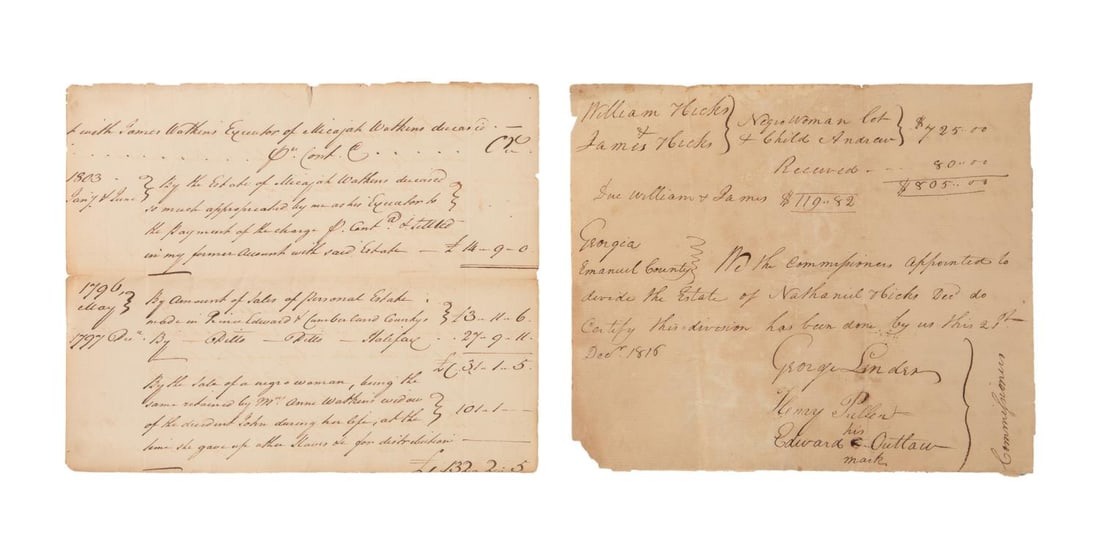 with James Watkins Executor of Micajah Watkins deceased
Pr Cont C Cr
1803
Jany & June } By the Estate of Micajah Watkins deceased
so much appropriated by me as his Executor to
the payment of the charge Pr Conta & Settled
in my former Account with said Estate — £14-9-0
1796
May } By Amount of Sales of Personal Estate
made in Prince Edward & Cumberland Countys } 13-11-6
1797 By — Ditto — Ditto — Halifax 27-9-11
31-1-5
By the Sale of a negro woman, being the
same retained by Mrs Anne Watkins widow
of the decedent John during her life, at the } 101-1-
time she gave up other Slaves for distribution
£132-2-5
William Hicks
&
James Hicks } Negro Woman Cot
& Child Andrew } $725..00
Received 80..00
$805..00
Due William & James $119..82
Georgia
Emanuel County } We the Commissioners appointed to
divide the Estate of Nathaniel Hicks Decd do
Certify this division has been done by us this 21st
Decr 1816
George Linder
Henry Pullen
his
Edward C Outlaw
mark
Commissioners